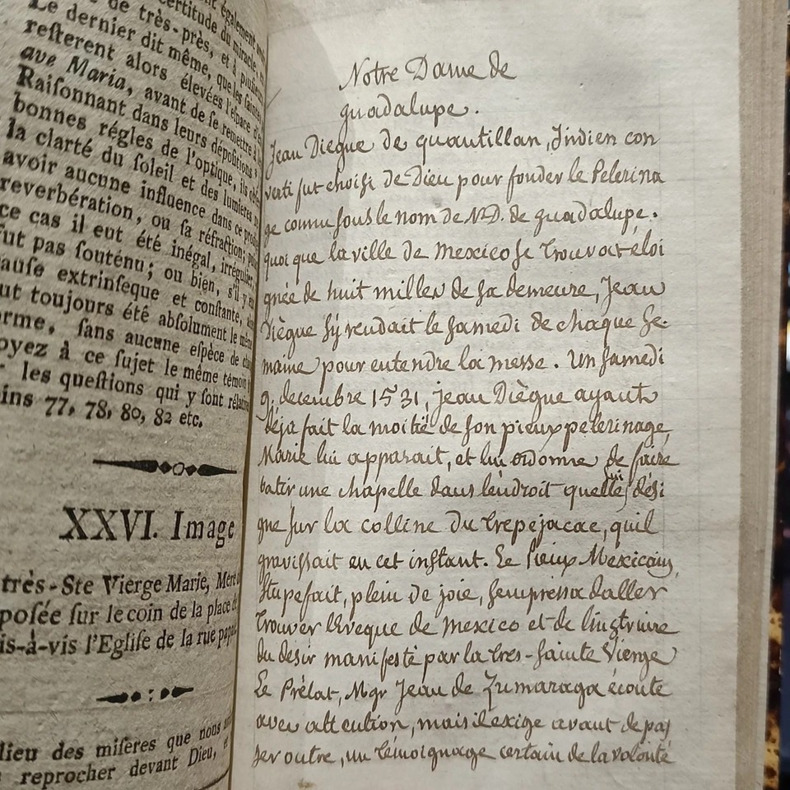 également
certitude du miracle,
de très-près, et à
Le dernier dit même, que les
resterent alors élevées l'espace d'
ave Maria, avant de se remettre à
Raisonnant dans leurs dépositions
bonnes régles de l'optique, ils
la clarté du soleil et des lumieres
avoir aucune influence dans ce
reverbération, ou sa réfraction;
ce cas il eut été inégal, irrégulier,
fut pas soutenu; ou bien, s'il y
cause extrinseque et constante,
ut toujours été absolument le même
forme, sans aucune espèce de
oyez à ce sujet le même témoin
les questions qui y sont
ins 77, 78, 80, 82 etc.
XXVI. Image
très-Ste Vierge Marie,
posée sur le coin de la place
is-à-vis l'Eglise de la rue
lieu des miseres que nous
reprocher devant Dieu,
Notre Dame de
guadalupe.
Jean Dieque de quautillan, Indien con
verti fut choisi de Dieu pour fonder le Pelerina
ge connu sous le nom de N.D. de guadalupe.
quoi que la ville de Mexico se trouvat éloi
gnée de huit milles de sa demeure, Jean
Dièque s'y rendait le samedi de chaque se-
maine pour entendre la messe. Un samedi
9. decembre 1531, jean Dièque ayant
déja fait la moitié de son pieux pelerinage
Marie lui apparait, et lui ordonne de faire
batir une chapelle dans l'endroit quelle lui dési
gne sur la colline du Crepejacac, quil
gravissait en cet instant. Le pieux Mexicain,
stupefait, plein de joie, s'empressa daller
trouver lEveque de Mexico et de linstruire
du desir manifesté par la tres-sainte Vierge
Le Prélat, Mgr Jean de Zumaraga écoute
avec attention, mais il exige avant de pas
ser outre, un témoignage certain de la volonté